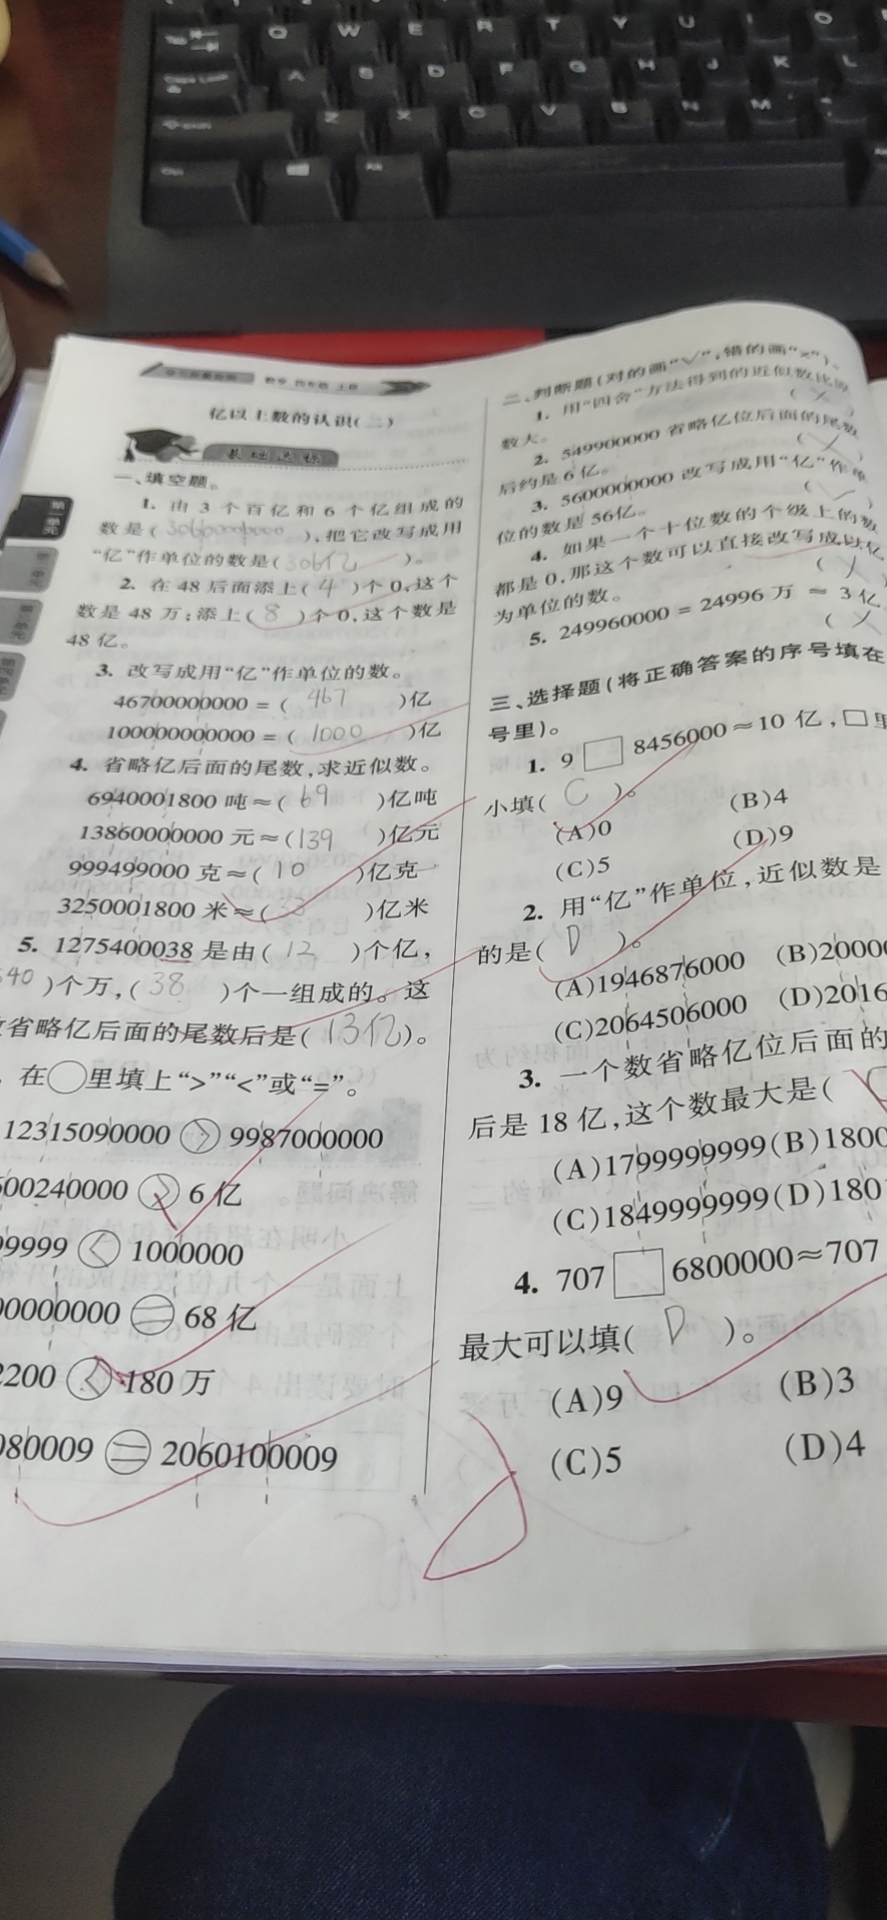 Q W E R T Y U I O
Caps Lock A S D F G H J K L
Z X C V B N M
Alt
亿以上数的认识(二)
基础达标
一、填空题。
1. 由 3 个百亿和 6 个亿组成的
数是( 30600000000 ),把它改写成用
“亿”作单位的数是( 306亿 )。
2. 在 48 后面添上( 4 )个 0,这个
数是 48 万;添上( 8 )个 0,这个数是
48 亿。
3. 改写成用“亿”作单位的数。
46700000000 = ( 467 )亿
100000000000 = ( 1000 )亿
4. 省略亿后面的尾数,求近似数。
6940001800 吨≈( 69 )亿吨
13860000000 元≈(139 )亿元
999499000 克≈( 10 )亿克
3250001800 米≈( )亿米
5. 1275400038 是由( 12 )个亿,
540 )个万,( 38 )个一组成的。这
省略亿后面的尾数后是( 13亿)。
在○里填上“>”“<”或“=”。
12315090000 > 9987000000
600240000 > 6 亿
99999 < 1000000
00000000 = 68 亿
2200 < 180 万
080009 = 2060100009
二、判断题(对的画“√”,错的画“×”)。
1. 用“四舍”方法得到的近似数比原
数大。 ( × )
2. 549900000 省略亿位后面的尾数
后约是 6 亿。 ( × )
3. 5600000000 改写成用“亿”作单
位的数是 56亿。 ( √ )
4. 如果一个十位数的个级上的数
都是 0,那这个数可以直接改写成以亿
为单位的数。 ( × )
5. 249960000 = 24996 万 ≈ 3 亿
( × )
三、选择题(将正确答案的序号填在
号里)。
1. 9 □ 8456000≈10 亿,□里
小填( C )。
(A)0 (B)4
(C)5 (D)9
2. 用“亿”作单位,近似数是
的是( D )。
(A)1946876000 (B)20000
(C)2064506000 (D)2016
3. 一个数省略亿位后面的
后是 18 亿,这个数最大是( C
(A)1799999999(B)1800
(C)1849999999(D)180
4. 707 □ 6800000≈707
最大可以填( D )。
(A)9 (B)3
(C)5 (D)4